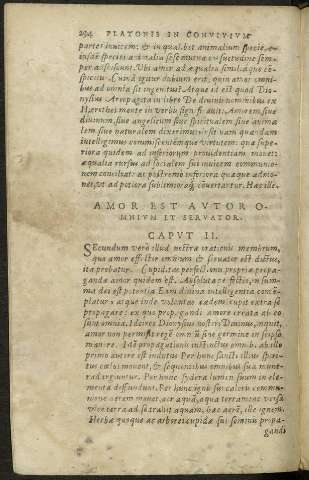 294 PLATONIS IN CONVIVIVM
partes inuicem: & in qualibet animalium specie, e-
iusdē speciei animalia sese mutua cōsuetudine sem-
per adsciscunt. Vbi amor ad æqualia similiaque cō-
spicitur. Cui nā igitur dubium erit, quin amor omni-
bus ad omnia sit ingenitus? Atque id est quod Dio-
nysius Areopagita in libro De diuinis nominibus ex
Hærothei mente in verbis significauit. Amorem, siue
diuinum, siue angelicum, siue spiritualem, siue anima
lem, siue naturalem dixerimus, insitam quandam
intelligimus commiscentemque virtutem: quæ supe-
riora quidem ad inferiorum prouidentiam mouet:
æqualia rursus ad socialem sui inuicem communio-
nem conciliat: ac postremò inferiora quæque admo-
net, vt ad potiora sublimioraq́; conuertantur. Hæc ille.
AMOR EST AVTOR O-
MNIVM ET SERVATOR.
CAPVT II.
SEcundum verò illud nostræ orationis membrum,
quo amor effector omnium & seruator est dictus,
ita probatur. Cupiditas perfectionis propriæ propa-
gandæ amor quidem est. Absoluta perfectio, in sum-
ma dei est potentia. Eam diuina intelligentia contē-
platur: atque inde voluntas eadem cupit extra se
propagare: ex quo propagandi amore creata ab eo
sunt omnia. Idcirco Dionysius noster, Diuinus, inquit,
amor non permisit regē omniū sine germine in seipso
manere. Idē propagationis instinctus omnib. ab illo
primo autore est inditus. Per hunc sancti illius spiri-
tus cælos mouent, & sequentibus omnibus sua mune-
ra largiuntur. Per hunc sydera lumen suum in ele-
menta diffundunt. Per hunc ignis sui caloris commu-
nione aerem mouet, aer aquā, aqua terram: et versa
vice terra ad se trahit aquam, hæc aerē, ille ignem.
Herbæ quoque ac arbores cupidæ sui seminis propa-
gandi